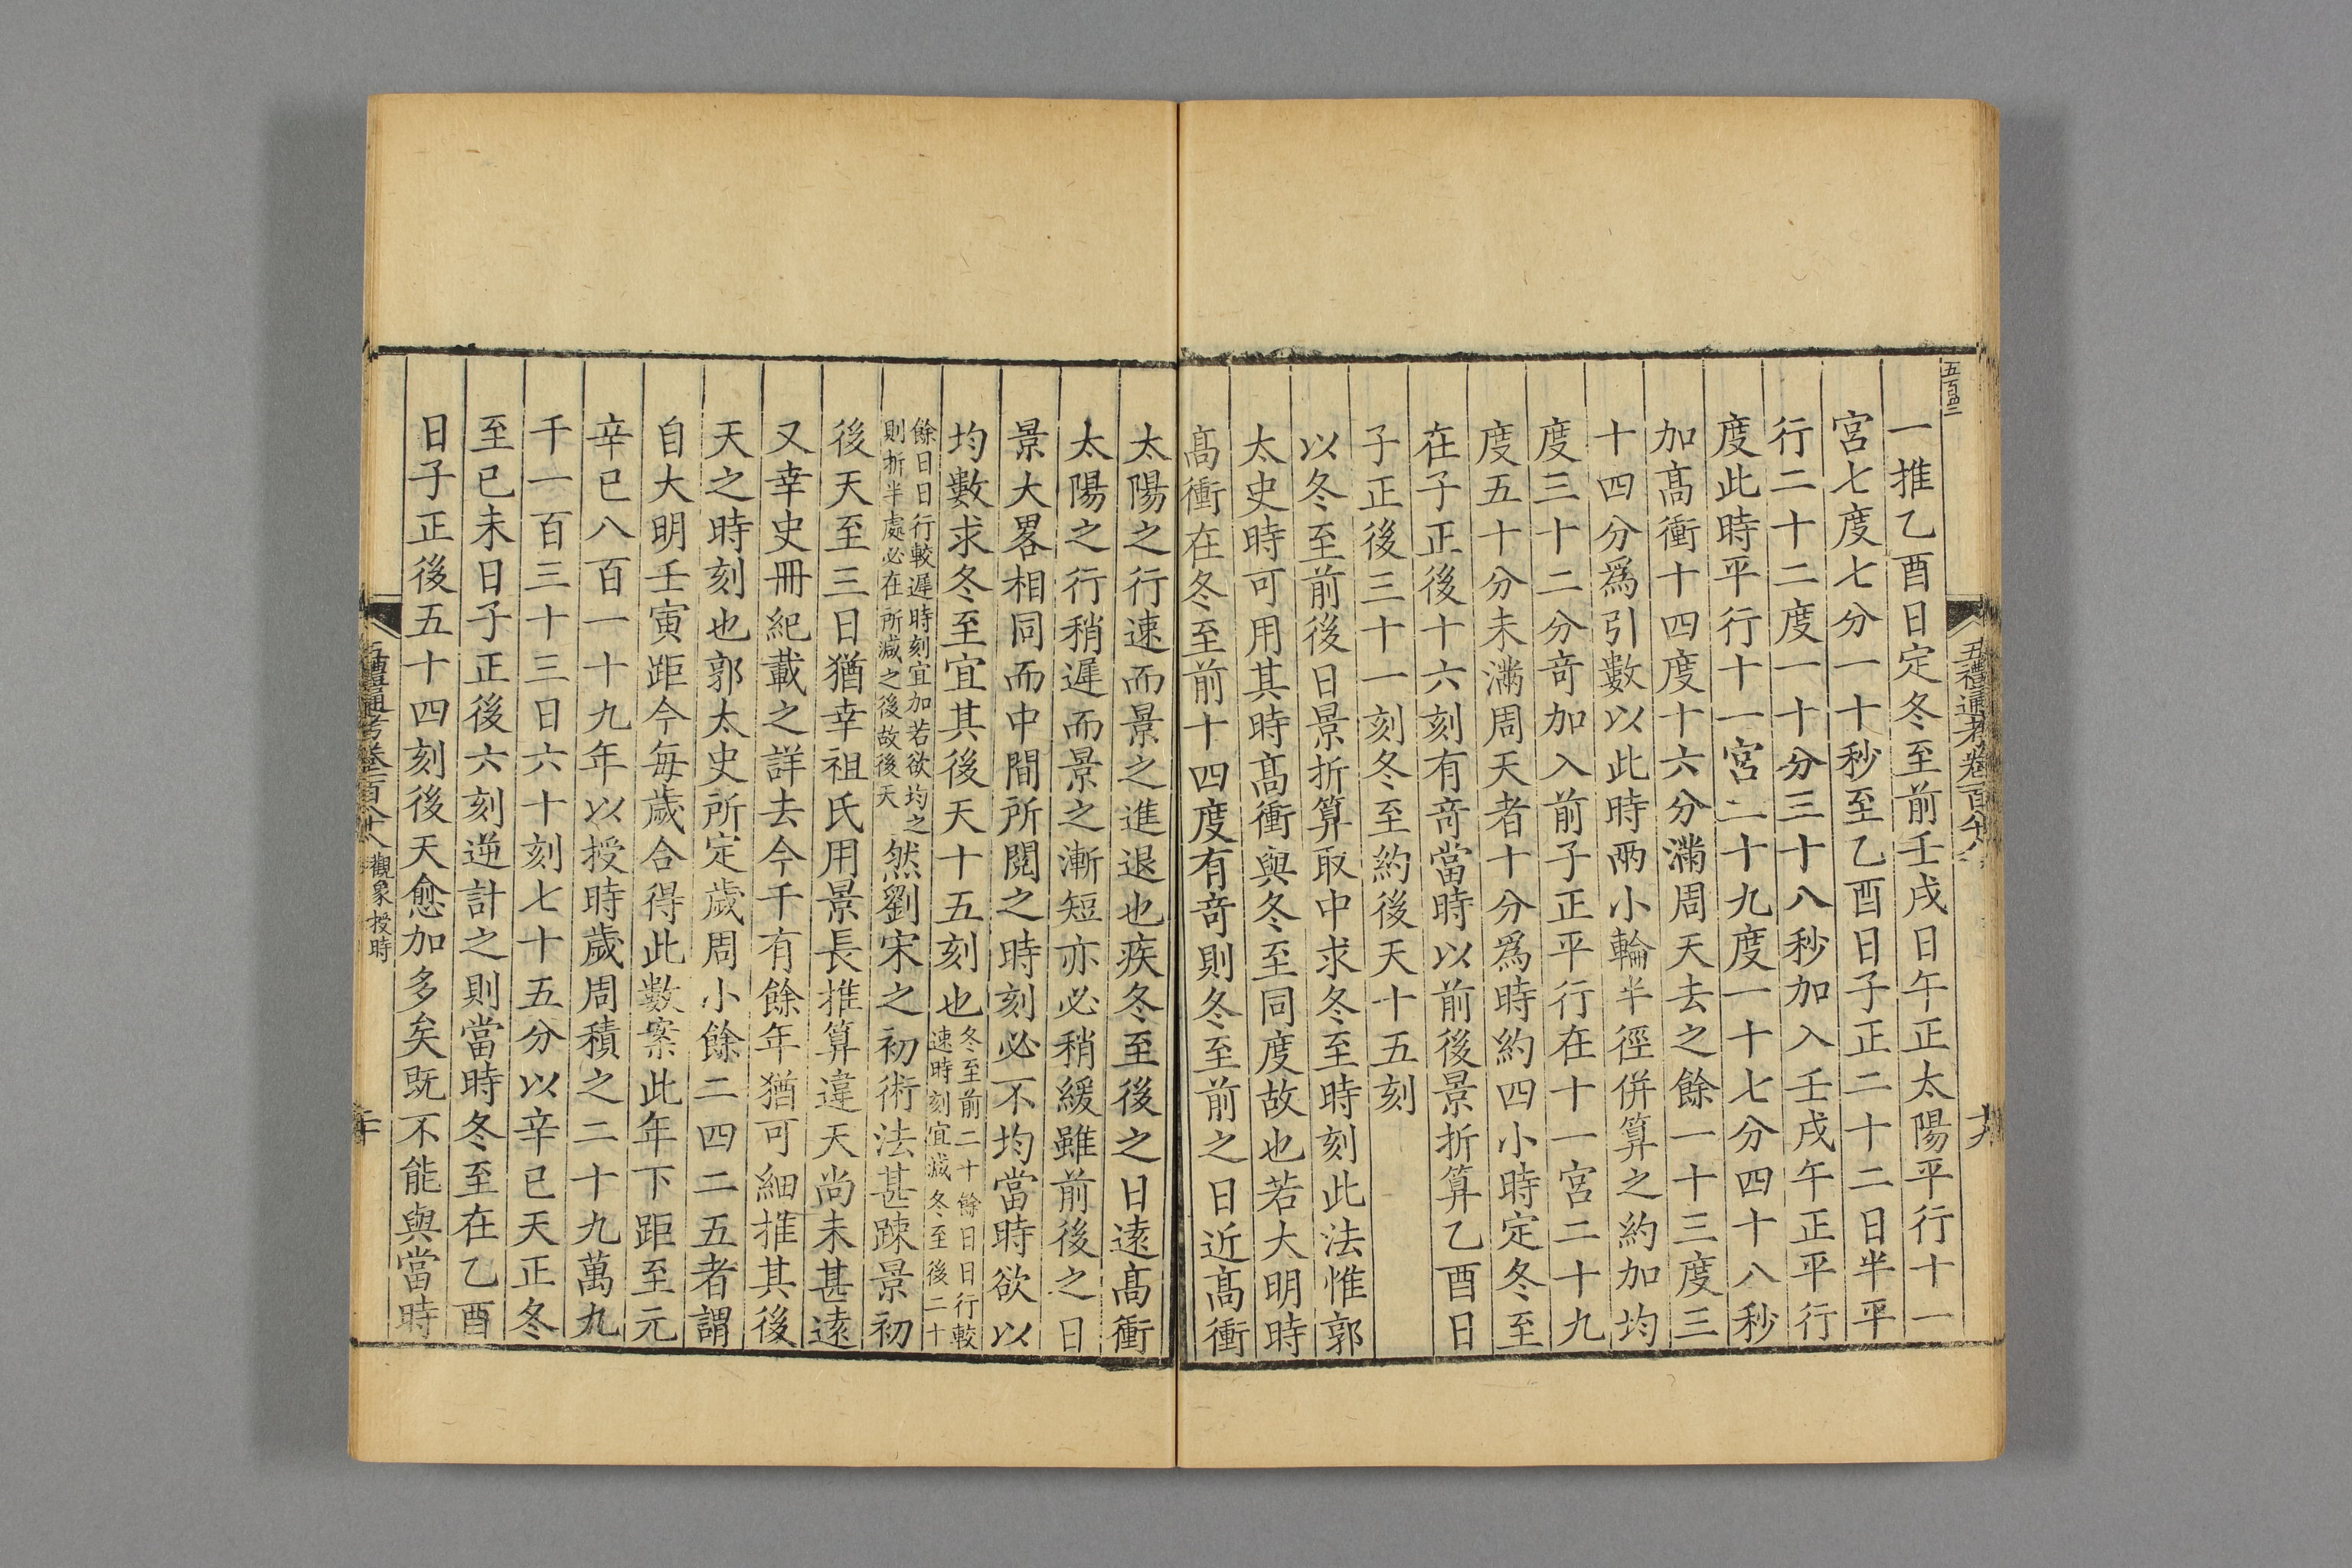 五禮通考卷一百八十八
一推乙酉日定冬至前壬戌日午正太陽平行十一
宮七度七分一十秒至乙酉日子正二十二日半平
行二十二度一十分三十八秒加入壬戌午正平行
度此時平行十一宮二十九度一十七分四十八秒
加髙衝十四度十六分滿周天去之餘一十三度三
十四分爲引數以此時兩小輪半徑併算之約加均
度三十二分竒加入前子正平行在十一宮二十九
度五十分未滿周天者十分爲時約四小時定冬至
在子正後十六刻有竒當時以前後景折算乙酉日
子正後三十一刻冬至約後天十五刻
以冬至前後日景折算取中求冬至時刻此法惟郭
太史時可用其時髙衝與冬至同度故也若大明時
髙衝在冬至前十四度有竒則冬至前之日近髙衝
太陽之行速而景之進退也疾冬至後之日逺髙衝
太陽之行稍遲而景之漸短亦必稍緩雖前後之日
景大畧相同而中間所閱之時刻必不均當時欲以
均數求冬至宜其後天十五刻也冬至前二十餘日日行較
速時刻宜減冬至後二十
餘日日行較遲時刻宜加若欲均之
則折半處必在所減之後故後天然劉宋之初術法甚踈景初
後天至三日猶幸祖氏用景長推算違天尚未甚逺
又幸史冊紀載之詳去今千有餘年猶可細推其後
天之時刻也郭太史所定歲周小餘二四二五者謂
自大明壬寅距今每歲合得此數案此年下距至元
辛巳八百一十九年以授時歲周積之二十九萬九
千一百三十三日六十刻七十五分以辛巳天正冬
至己未日子正後六刻逆計之則當時冬至在乙酉
日子正後五十四刻後天愈加多矣既不能與當時
五禮通考卷一百八十八 觀象授時 二十